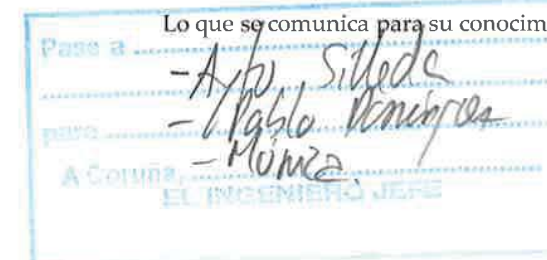 Lo que se comunica para su conocim
Pase a
- Ayto Silleda
- Pablo Domínguez
para
- Mónica.
A Coruña,
EL INGENIERO JEFE